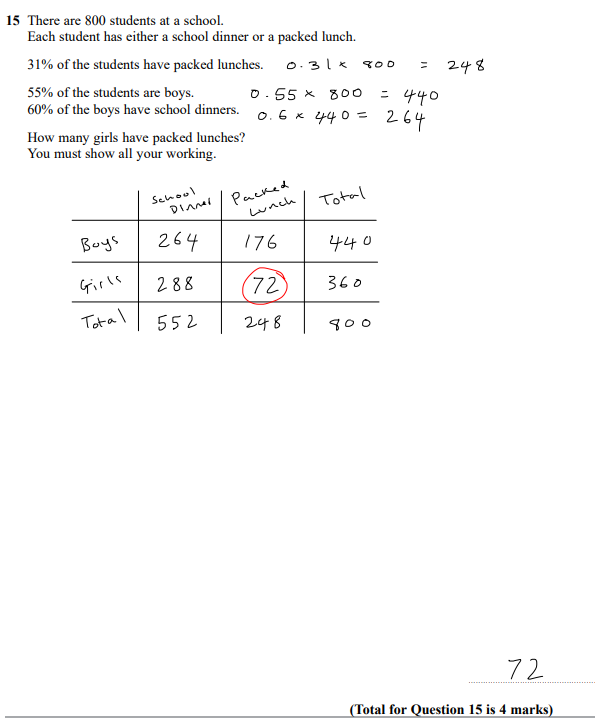 15 There are 800 students at a school.
Each student has either a school dinner or a packed lunch.
31% of the students have packed lunches. 0.31 × 800 = 248
55% of the students are boys. 0.55 × 800 = 440
60% of the boys have school dinners. 0.6 × 440 = 264
How many girls have packed lunches?
You must show all your working.
School Dinner Packed Lunch Total
Boys 264 176 440
Girls 288 72 360
Total 552 248 800
72
(Total for Question 15 is 4 marks)